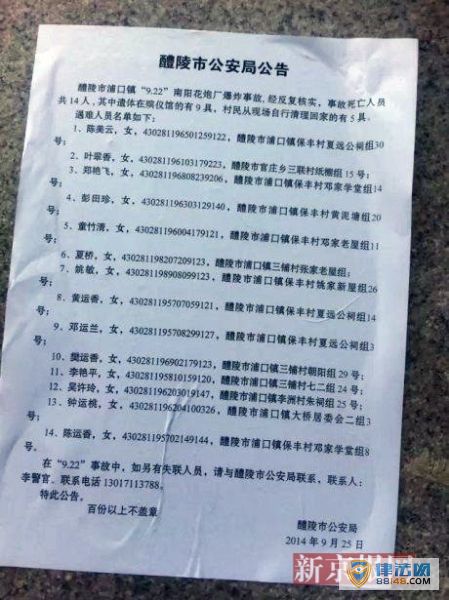 醴陵市公安局公告
醴陵市浦口镇“9.22”南阳花炮厂爆炸事故,经反复核实,事故死亡人员
共14人,其中遗体在殡仪馆的有9具,村民从现场自行清理回家的有5具。
遇难人员名单如下:
1、陈美云,女,430281196501259122,醴陵市浦口镇保丰村夏远公祠组30
号;
2、叶翠香,女,430281196103179223,醴陵市官庄乡三联村纸棚组15号;
3、郑艳飞,女,430281196808239206,醴陵市浦口镇保丰村邓家学堂组14
号;
4、彭田珍,女,430281196303129140,醴陵市浦口镇保丰村黄泥塘组20
号;
5、童竹清,女,430281196004179121,醴陵市浦口镇保丰村邓家老屋组11
号;
6、夏桥,女,430281198207209123,醴陵市浦口镇三铺村张家老屋组;
7、姚敏,女,430281198908099123,醴陵市浦口镇保丰村姚家新屋组26
号;
8、黄运香,女,430281195707059121,醴陵市浦口镇保丰村夏远公祠组14
号;
9、邓运兰,女,430281195708299127,醴陵市浦口镇保丰村夏远公祠组3
号;
10、樊运香,女,430281196902179123,醴陵市浦口镇三铺村朝阳组29号;
11、李艳平,女,430281195810159120,醴陵市浦口镇三铺村七二组24号;
12、吴许玲,女,430281196203019147,醴陵市浦口镇李洲村朱祠组25号;
13、钟运桃,女,430281196204100326,醴陵市浦口镇大桥居委会二组3
号;
14、陈运香,女,430281195702149144,醴陵市浦口镇保丰村邓家学堂组8
号。
在“9.22”事故中,如另有失联人员,请与醴陵市公安局联系,联系人:
李警官。联系电话13017113788。
特此公告。
百份以上不盖章
醴陵市公安局
2014年9月25日
新京报网
律法网
8848.com